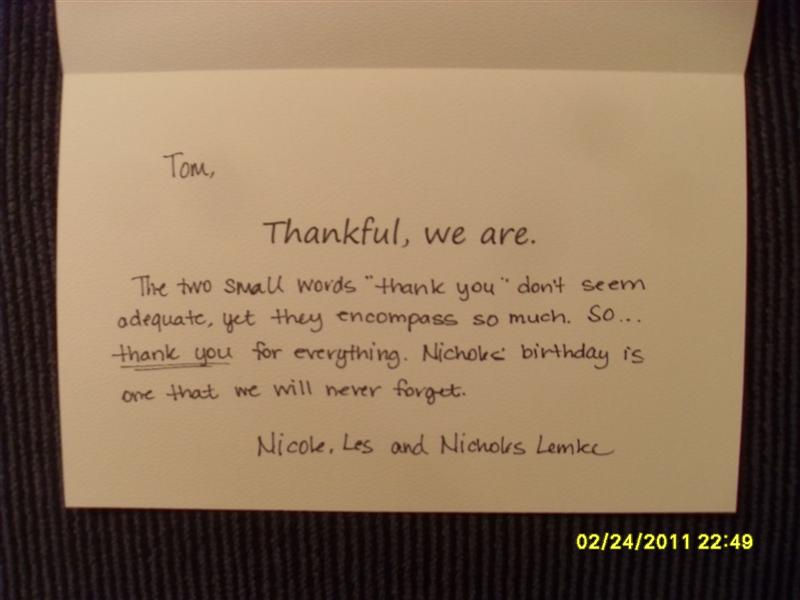 Tom,
Thankful, we are.
The two small words "thank you" don't seem
adequate, yet they encompass so much. So...
thank you for everything. Nicholas' birthday is
one that we will never forget.
Nicole, Les and Nicholas Lemke
02/24/2011 22:49